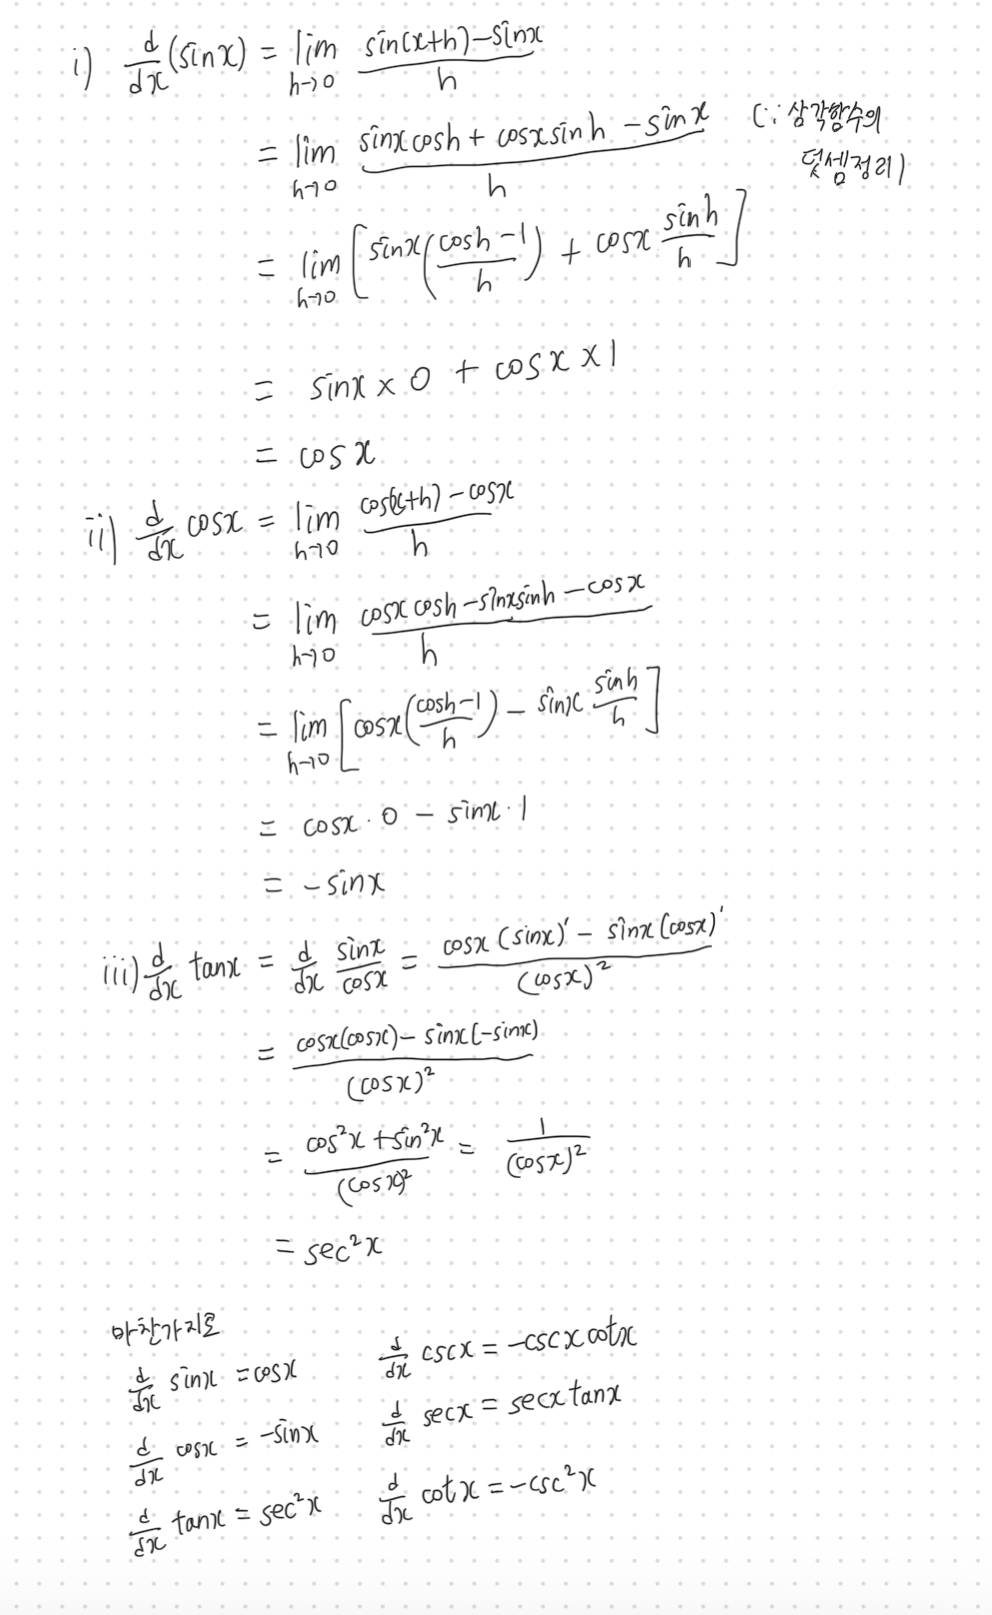 i) d/dx (sinx) = lim h→0 (sin(x+h)-sinx)/h
= lim h→0 (sinxcosh + cosxsinh - sinx)/h (∵ 삼각함수의
덧셈정리)
= lim h→0 [sinx((cosh-1)/h) + cosx sinh/h]
= sinx × 0 + cosx × 1
= cosx
ii) d/dx cosx = lim h→0 (cos(x+h)-cosx)/h
= lim h→0 (cosxcosh-sinxsinh-cosx)/h
= lim h→0 [cosx((cosh-1)/h) - sinx sinh/h]
= cosx · 0 - sinx · 1
= -sinx
iii) d/dx tanx = d/dx sinx/cosx = (cosx(sinx)' - sinx(cosx)')/(cosx)²
= (cosx(cosx) - sinx(-sinx))/(cosx)²
= (cos²x + sin²x)/(cosx)² = 1/(cosx)²
= sec²x
마찬가지로
d/dx sinx = cosx d/dx cscx = -cscxcotx
d/dx cosx = -sinx d/dx secx = secxtanx
d/dx tanx = sec²x d/dx cotx = -csc²x